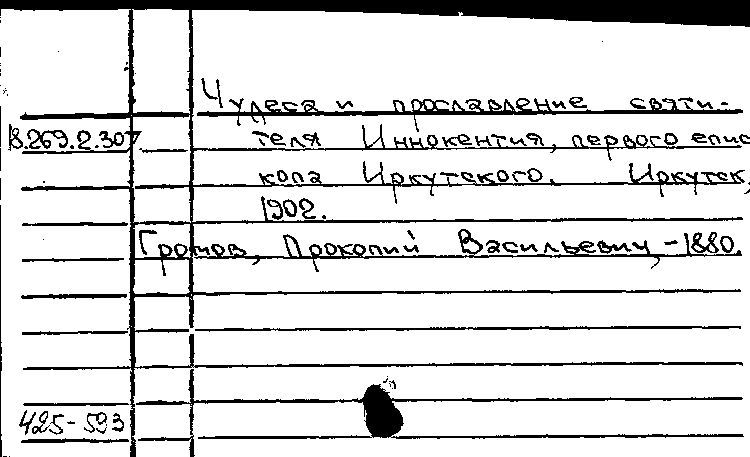 Чудеса и прославление святи-
18.269.2.307 теля Иннокентия, первого епис
копа Иркутского. Иркутск,
1902.
Громов, Прокопий Васильевич, -1880.
425-593